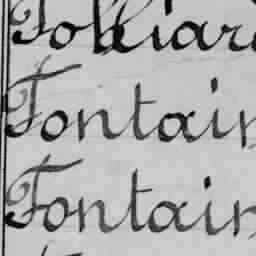 Folliard
Fontain
Fontain